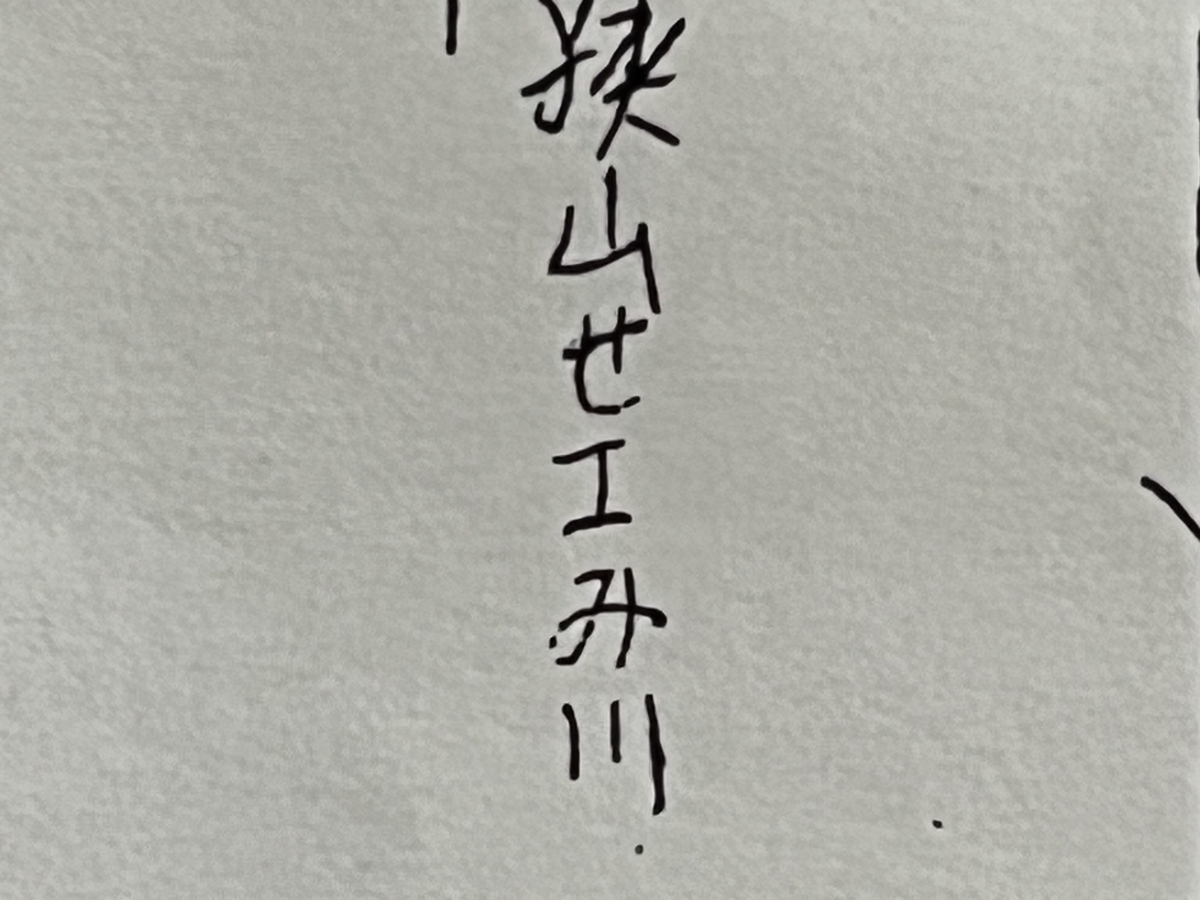 狭山せエみ川